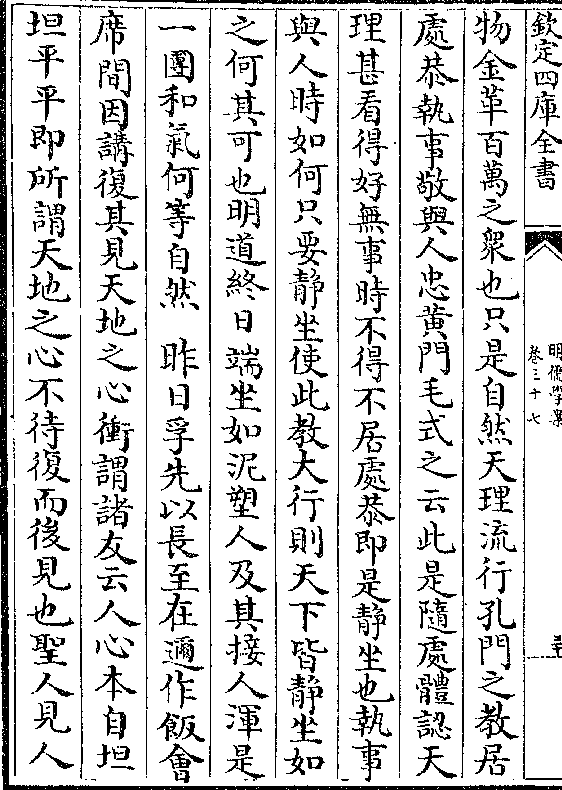 欽定四庫全書
明儒學案
卷三十七
物金革百萬之衆也只是自然天理流行孔門之教居
處恭執事敬與人忠黄門毛式之云此是隨處體認天
理甚看得好無事時不得不居處恭即是静坐也執事
與人時如何只要静坐使此教大行則天下皆静坐如
之何其可也明道終日端坐如泥塑人及其接人渾是
一團和氣何等自然　昨日孚先以長至在邇作飯會
席間因講復其見天地之心衝謂諸友云人心本自坦
坦平平即所謂天地之心不待復而後見也聖人見人